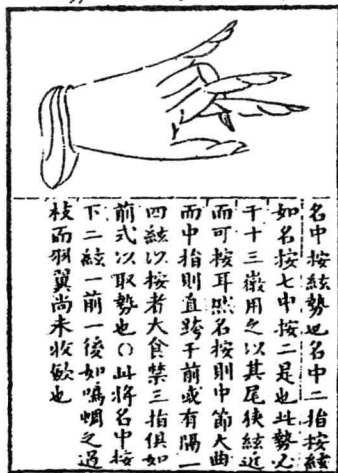 名中按絃勢也名中二指按絃
如名按七中按二是也此勢必
于十三徽用之以其尾狹絃近
而可按耳然名按則中節大曲
而中指則直跨于前或有隔一
四絃以按者大食禁三指俱如
前式以取勢也○此將名中按
下二絃一前一後如鳴蜩之過
枝而羽翼尚未收斂也